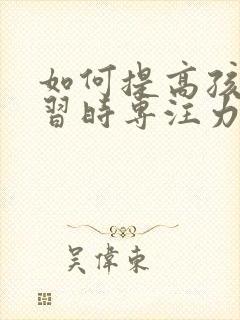 如何提高孩
習時專注力
吳偉東